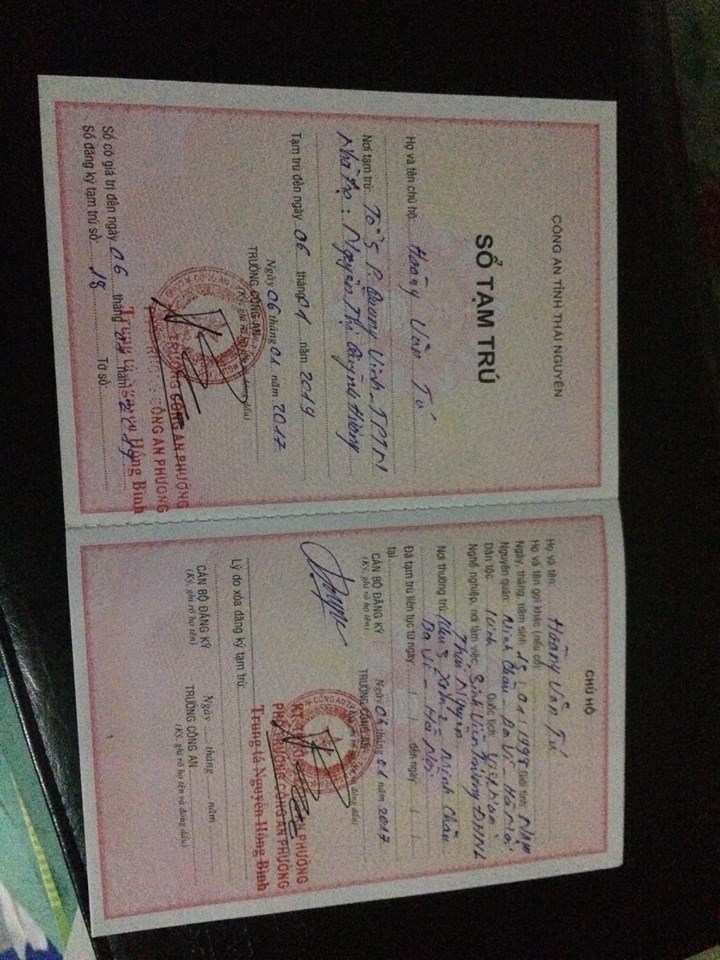 CÔNG AN TỈNH THÁI NGUYÊN
SỔ TẠM TRÚ
Họ và tên chủ hộ: Hoàng Văn Tú
Nơi tạm trú: Tổ 5 P. Quang Vinh - TPTN
Nhà trọ: Nguyễn Thị Hường
Tạm trú đến ngày 06 tháng 01 năm 2019
Ngày 06 tháng 01 năm 2017
TRƯỞNG CÔNG AN
(Ký, ghi rõ họ tên và đóng dấu)
TRƯỞNG CÔNG AN PHƯỜNG
PHÓ TRƯỞNG CÔNG AN PHƯỜNG
Trung tá Nguyễn Hồng Bình
Sổ có giá trị đến ngày 06 tháng 01 năm 2019
Số đăng ký tạm trú số: 18 Tờ số:
CHỦ HỘ
Họ và tên: Hoàng Văn Tú
Họ và tên gọi khác (nếu có):
Ngày, tháng, năm sinh: 15/01/1998 Giới tính: Nam
Nguyên quán: Minh Châu - Ba Vì - Hà Nội
Dân tộc: Kinh Quốc tịch: Việt Nam
Nghề nghiệp, nơi làm việc: Sinh viên trường ĐHNL
Thái Nguyên
Nơi thường trú: Minh Châu
Ba Vì - Hà Nội
Đã tạm trú liên tục từ ngày: / / đến ngày / /
tại
Ngày 06 tháng 01 năm 2017
CÁN BỘ ĐĂNG KÝ
(Ký, ghi rõ họ tên)
TRƯỞNG CÔNG AN
(Ký, ghi rõ họ tên và đóng dấu)
KT. TRƯỞNG CÔNG AN PHƯỜNG
PHÓ TRƯỞNG CÔNG AN PHƯỜNG
Trung tá Nguyễn Hồng Bình
Lý do xóa đăng ký tạm trú:
Ngày tháng năm
CÁN BỘ ĐĂNG KÝ
(Ký, ghi rõ họ tên)
TRƯỞNG CÔNG AN
(Ký, ghi rõ họ tên và đóng dấu)
1